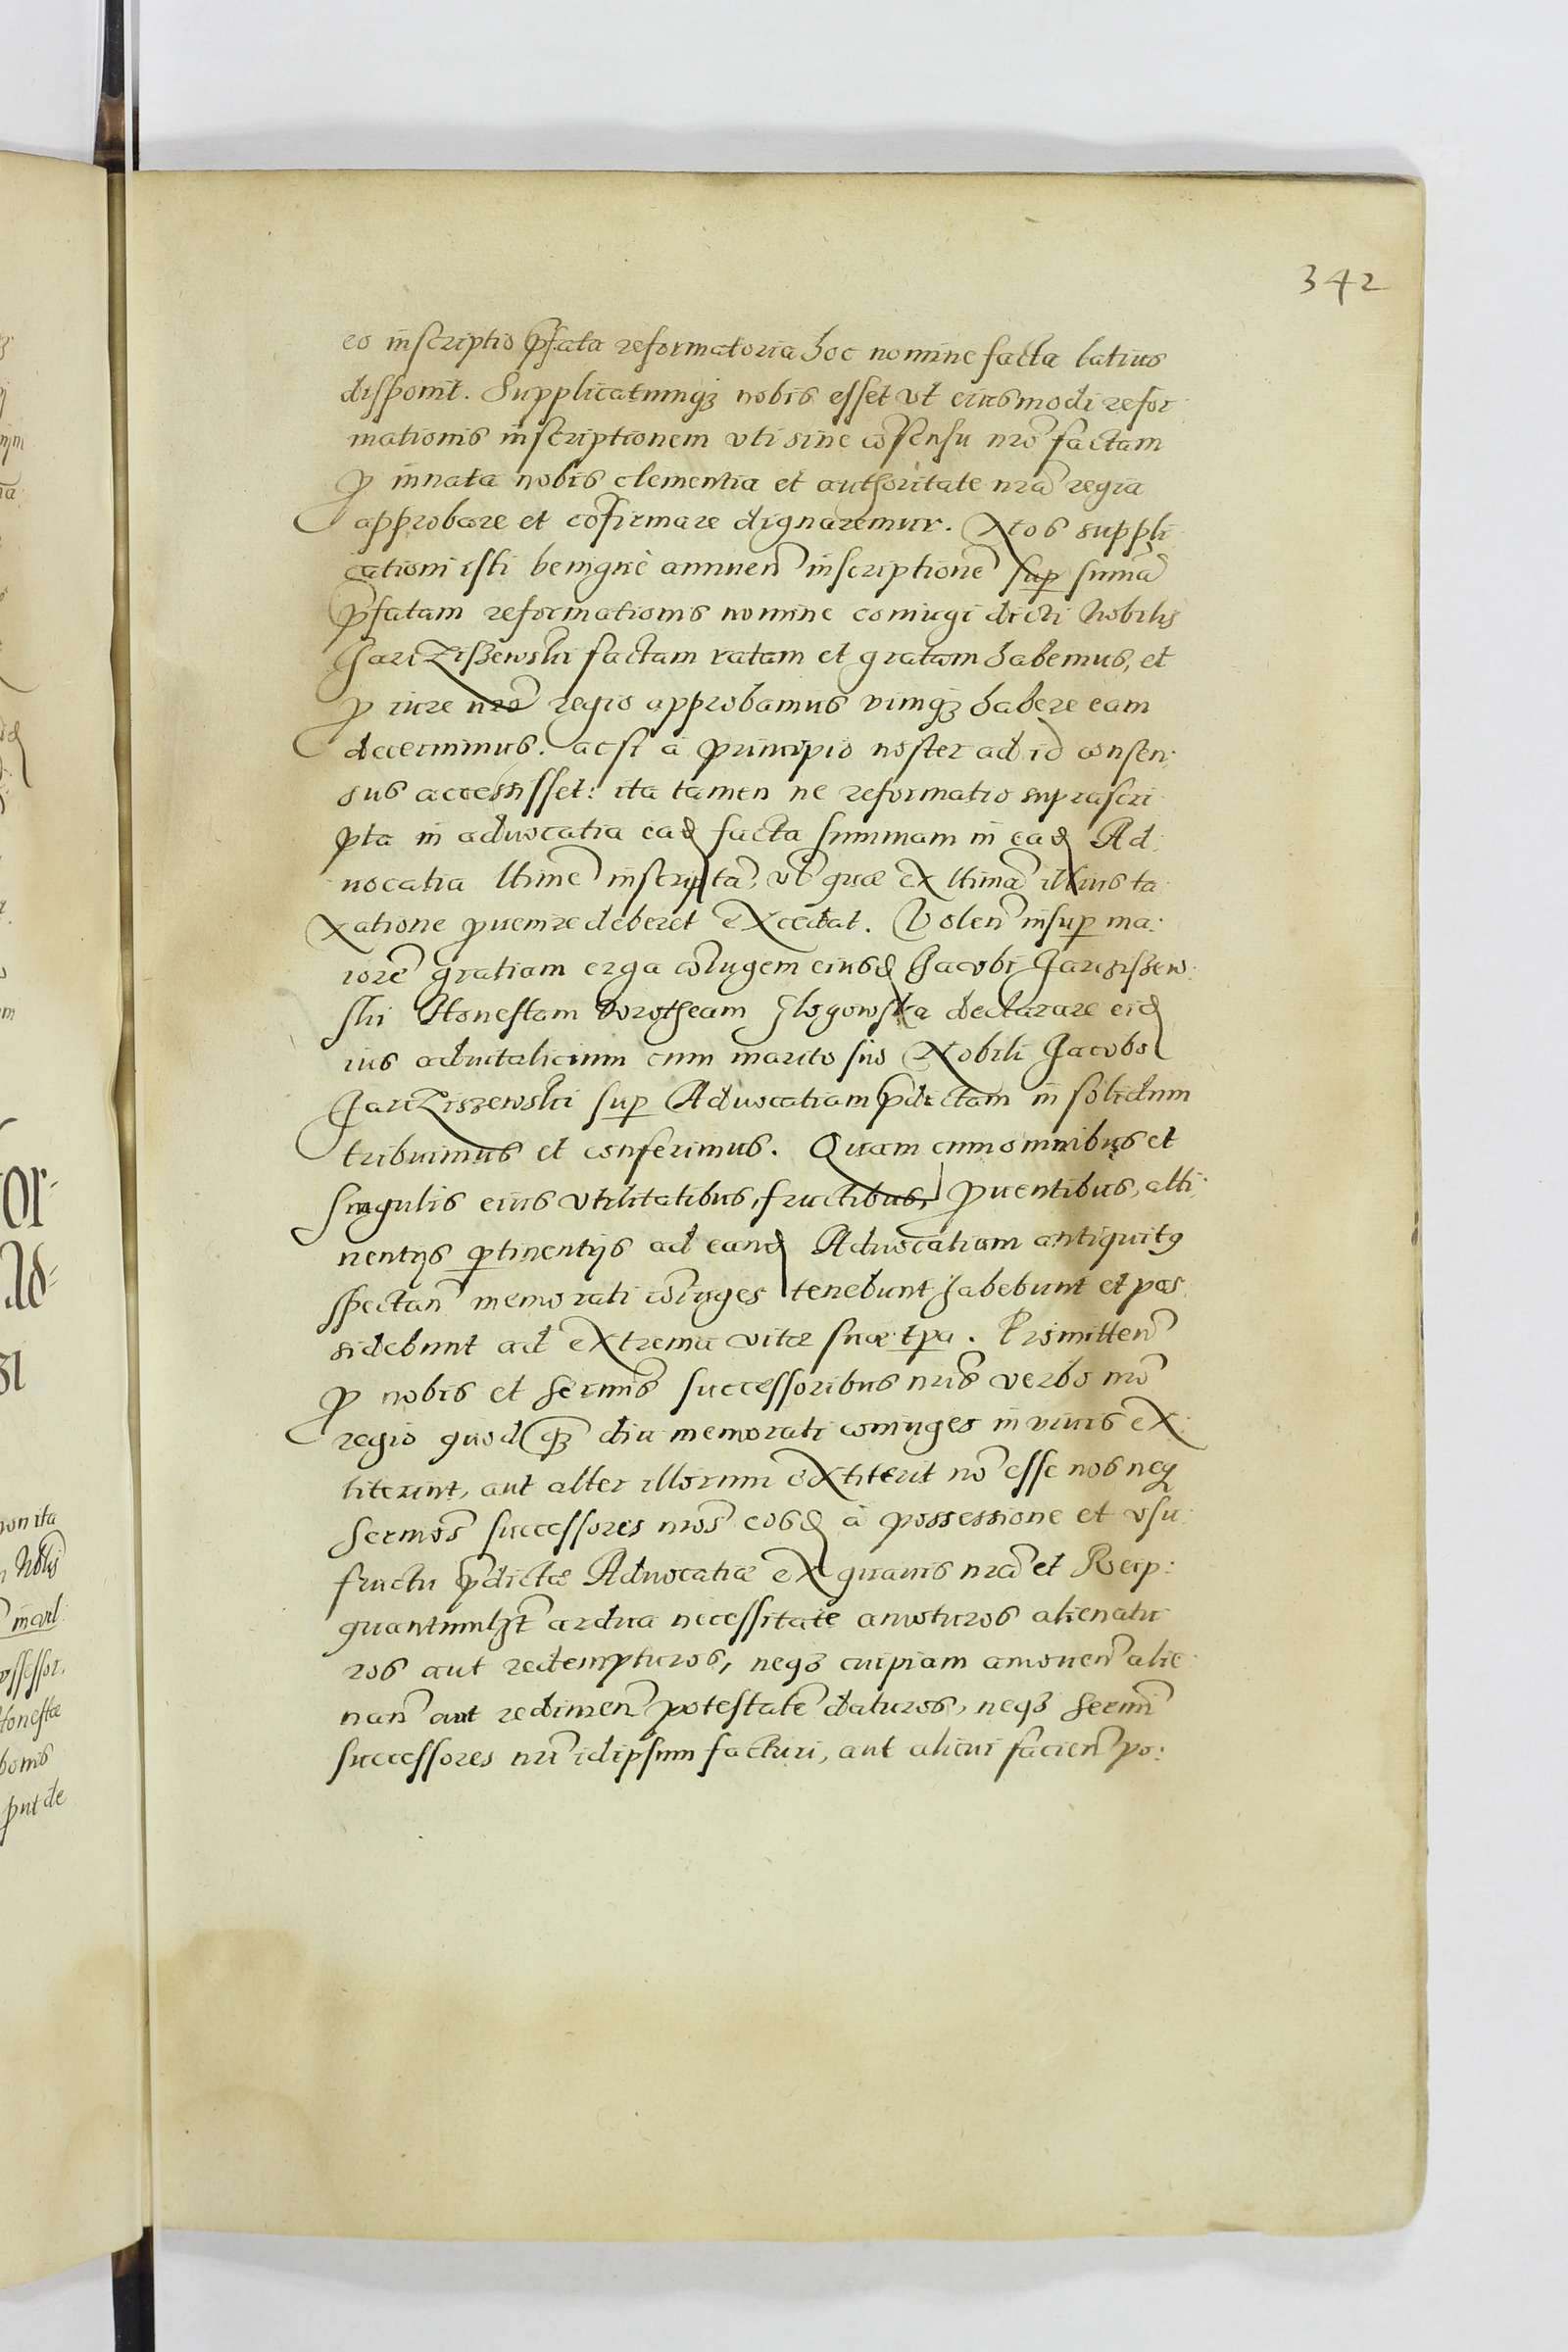 342
eo inscriptio p̄fata reformatoria hoc nomine facta latius
disponit. Supplicatumq3 nobis esset vt eiusmodi refor
mationis inscriptionem vti sine cōsensu nrō factam
p innata nobis clementia et authoritate nrā regia
approbare et cōfirmare dignaremur. Nos suppli
cationi isti benignè annuen̄ inscriptionē sup sumā
p̄fatam reformationis nomine coniugi dicti Nobilis
Jariziszewski factam ratam et gratam habemus, et
p iure nrō regio approbamus vimq3 habere eam
decernimus. acsi à principio noster ad id consen
sus accessisset: ita tamen ne reformatio suprascri
pta in aduocatia ead facta summam in ead Ad:
uocatia ltime inscriptā, vl quæ ex ltimā illius ta
xatione puenire deberet excedat. Volen̄ insup ma:
iorē gratiam erga cōiugem eiusd Jacobi Jariziszew
ski Honestam Dorotheam Glogowska declarare eid
ius aduitalicium cum marito suo Nobili Jacobo
Jariziszewski sup Aduocatiam p̄dictam in solidum
tribuimus et conferimus. Quam cum omnibus et
singulis eius vtilitatibus, fructibus, puentibus, atti
nentijs ptinentijs ad eand Aduocatiam antiquitus
spectan̄ memorati cōiuges tenebunt habebunt et pos
sidebunt ad extrema vitæ suæ tpa. Promitten̄
p nobis et Sermīs successoribus nrīs verbo nrō
regio quod q3 diu memorati coniuges in viuis ex
titerint, aut alter illorum extiterit nō esse nos neq
Sermōs successores nrōs eosd à possessione et vsu
fructu p̄dictæ Aduocatiæ ex quauis nrā et Reip:
quantumlz̄t ardua necessitate amoturos alienatu
ros aut redempturos, neq3 cuipiam amouen̄ alie
nan̄ aut redimen̄ potestatē daturos, neq3 Sermī
successores nrī idipsum facturi, aut alicui facien̄ po: